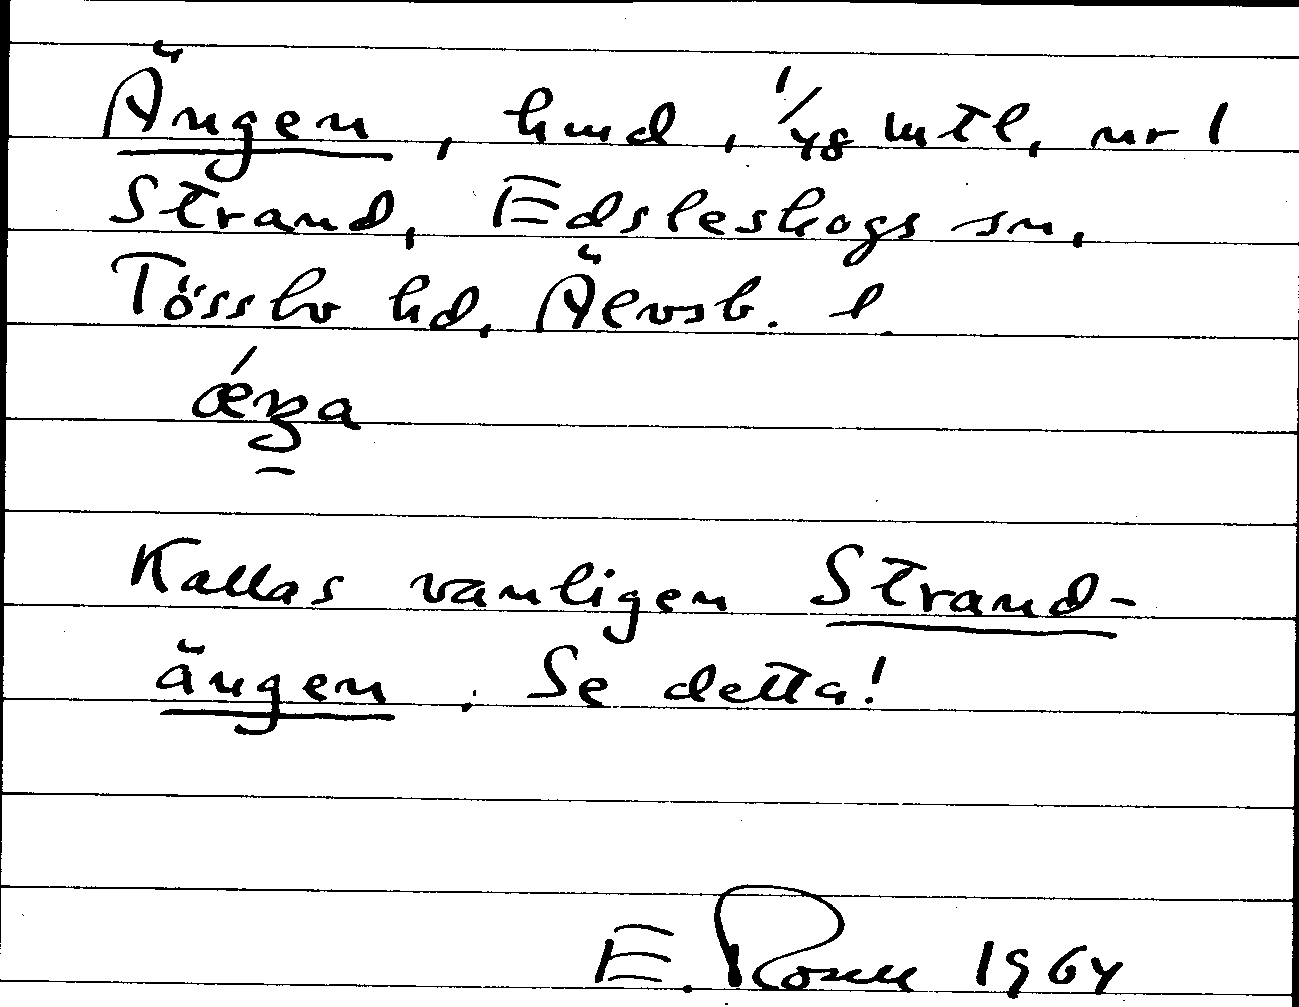 Ängen, hmd, 1/48 mtl, nr 1
Strand, Edsleskogs sn,
Tössbo hd, Älvsb. l.
ǽŋa
Kallas vanligen Strand-
ängen. Se detta!
E. Rosell 1964